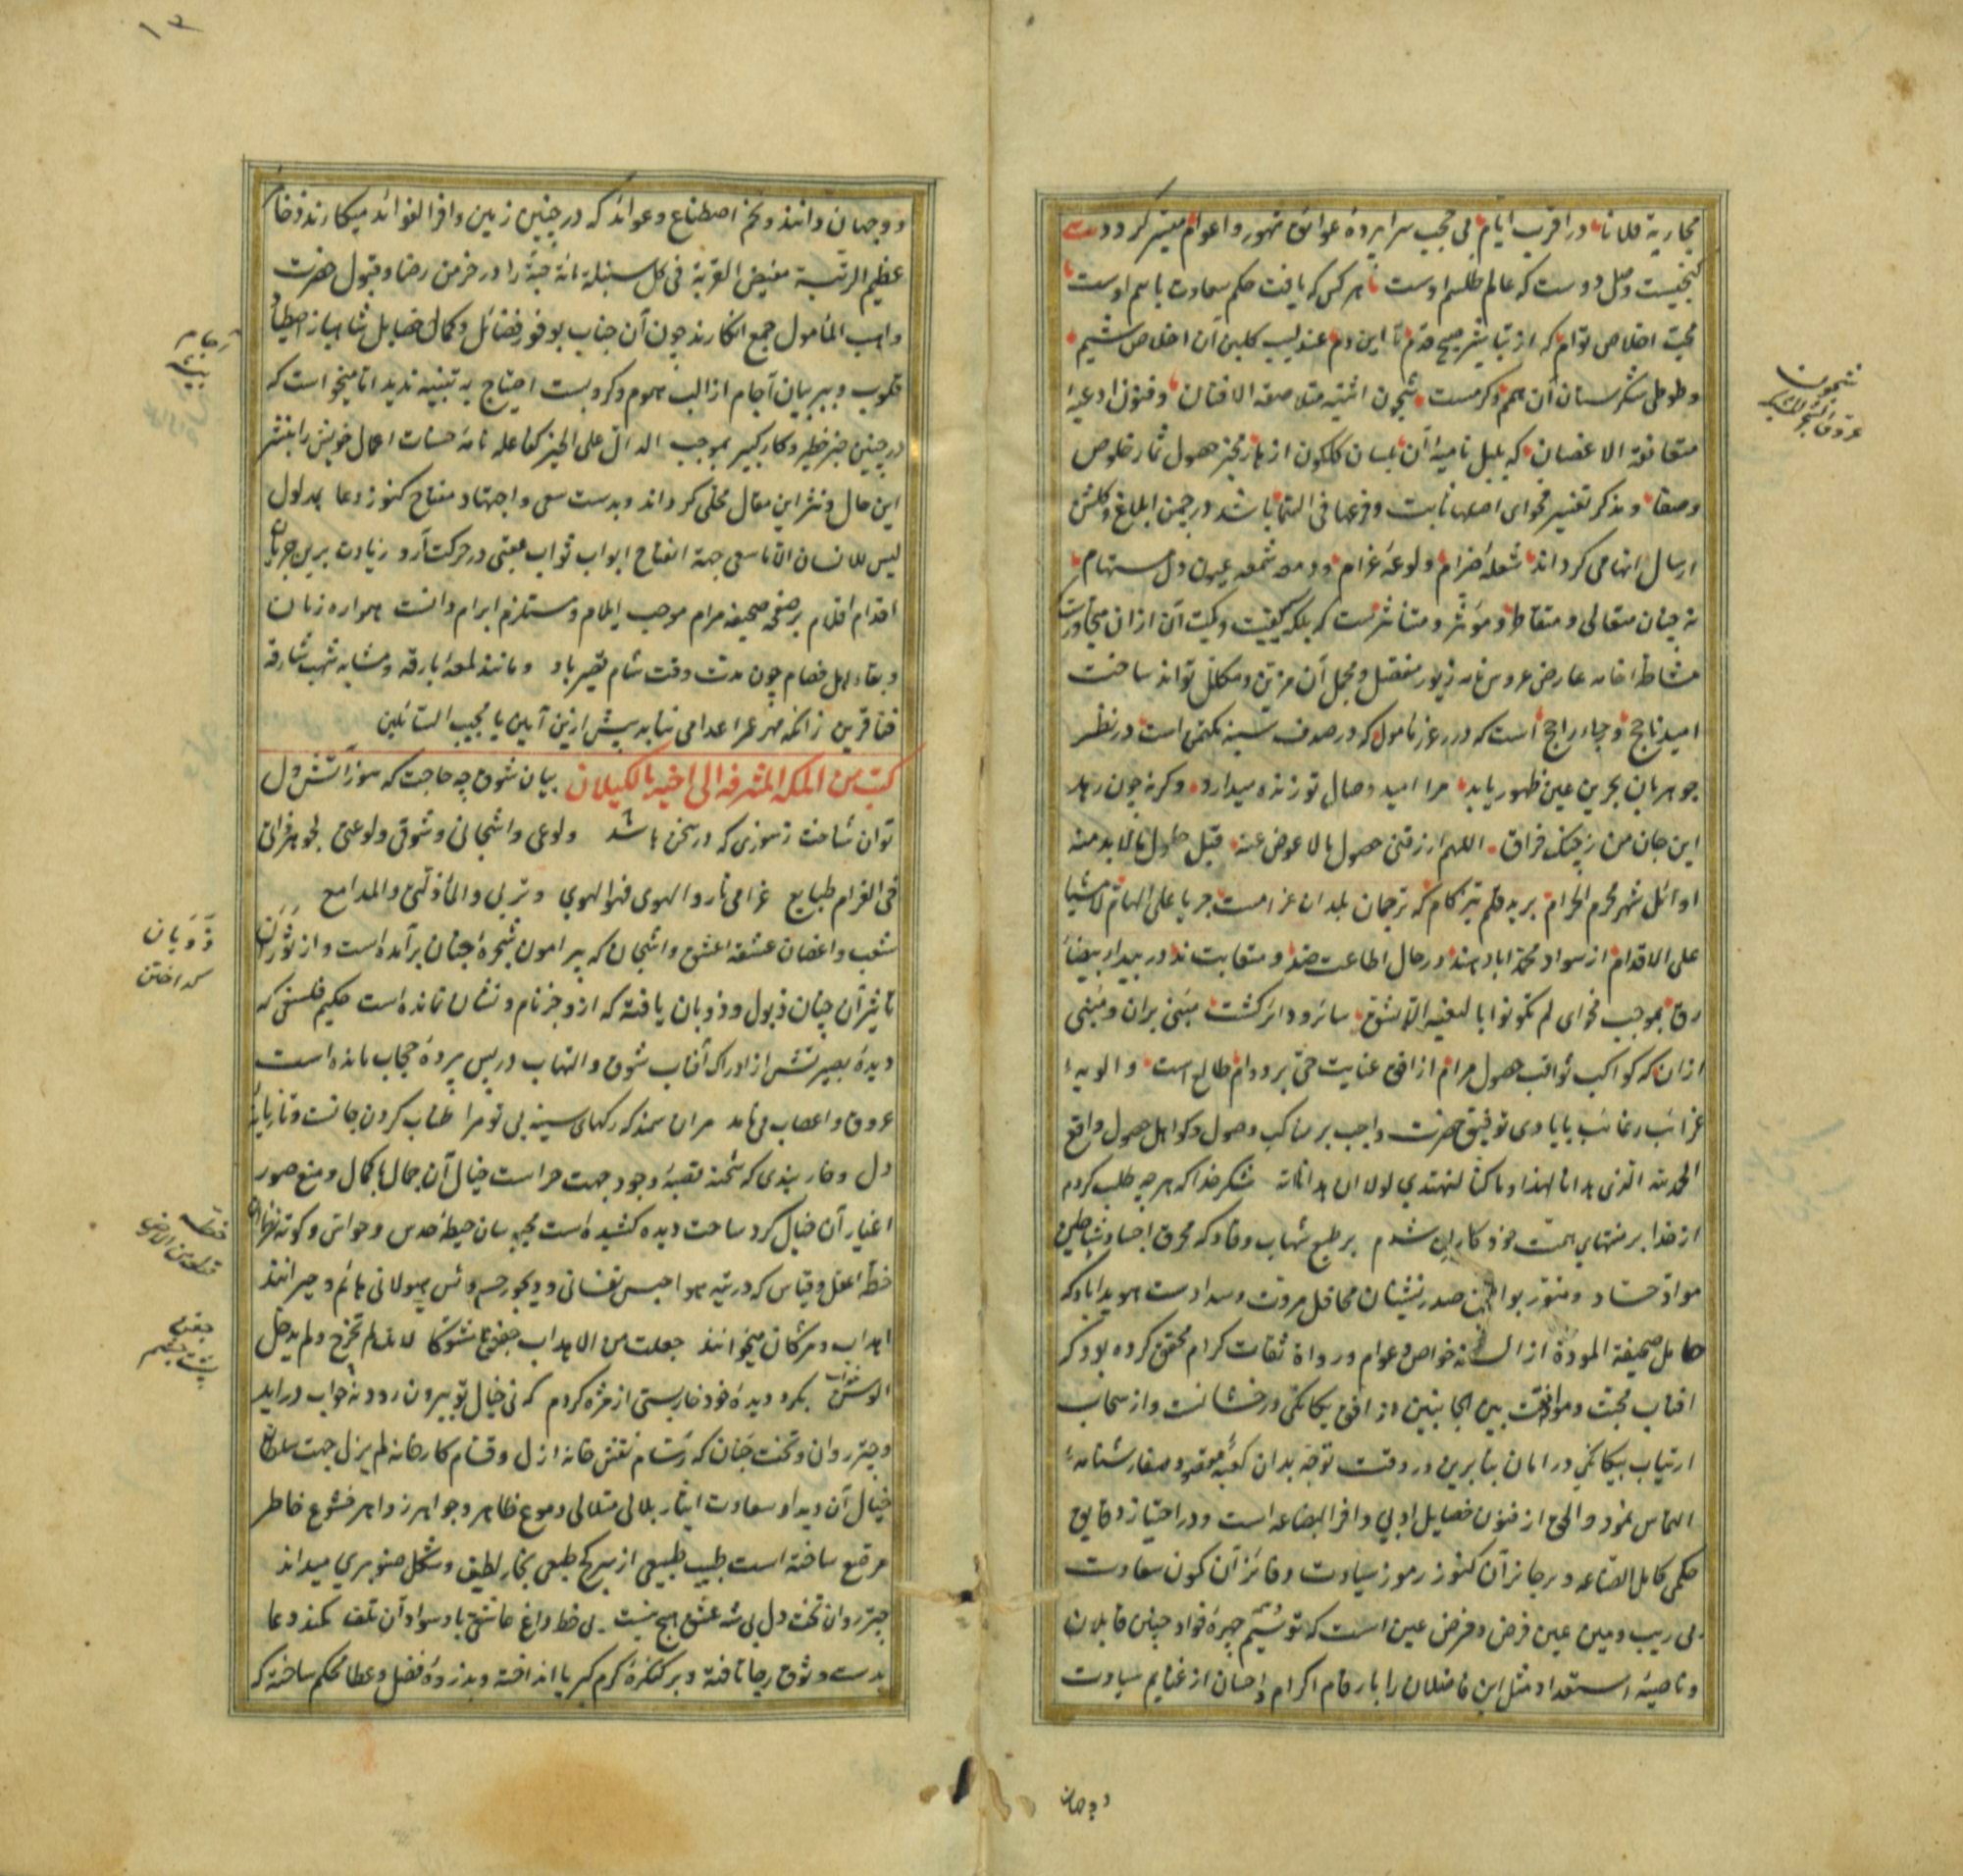 مجاریة فلانا در اقرب ایام بی حجب سراپردهٔ عوائق شهور و اعوام میسر کردد بیت
کنجیست وصل دوست که عالم طلسم اوست تا هر کس که یافت حکم سعادت باسم اوست
محبت اخلاص توام که از تباشیر صبح قدم تا این دم عندلیب کلبن آن اخلاص شیم
و طوطی شکرستان آن همم و کرمست شجون اثنیه متلاصقة الافنان و فنون ادعیهٔ
متعانقة الاغصان که بلبل نامیهٔ آن بلسان کلکون از هار مخبر حصول ثمار خلوص
وصفا و مذکر تفسیر فحوای اصلها ثابت و فرعها فی السما باشد در چمن ابلاغ و کلشن
ارسال انها می کرداند شعلهٔ ضرام و لوعهٔ غرام و دمعهٔ شمعه عیون دل مستهام
نه چنان متعالی و متقاطر و مؤثر و متأثرست که بلکه کیفیت و کمیت آن از ان متجاوزست
مشاطهٔ خامه عارض عروس نامه بزیور مفصل و مجمل آن مزین و مکلل تواند ساخت
امید ناجح و رجاء راجح است که درر غرر مأمول که در صدف سینه مکتمن است در نظر
جوهریان بحرین عین ظهور یابد مرا امید وصال تو زنده میدارد وکرنه چون رهد
این جان من ز چنک فراق اللهم ارزقنی حصول ما لا عوض عنه قبل حلول ما لا بد منه
اوائل شهر محرم الحرام برید قلم تیزکام که ترجمان بلدان غرامست جریا علی الهام لا مشیا
علی الاقدام از سواد محمدآباد هند در حال اطاعت ضد و متقابت ند در بیدا بیضاء
رق بموجب فحوای لم تکونوا بالغیه الا بشق سائر و دائر کشت مبنی بران و منبی
ازان که کواکب ثواقب حصول مرام از افق عنایت حق بر دوام طالع است و الویهٔ
غرائب رغائب بایادی توفیق حضرت واجب بر مناکب وصول و کواهل حصول واقع
الحمد لله الذی هدانا لهذا و ما کنا لنهتدی لولا ان هدانا الله شکر خدا که هر چه طلب کردم
از خدا بر منتهای همت خود کامران شدم بر طبع شهاب وقاد که محرق اجساد شیاطین
مواد حساد و منور بواطن صدرنشینان محافل مروت و سدادست هویدا باد که
حامل صحیفة المودة از السنه خواص و عوام و رواة ثقات کرام محقق کرده بود که
افتاب محبت و موافقت بین الجانبین از افق یکانکی درخشانست و از سحاب
ارتیاب بیکانکی در امان بنابرین در وقت توجه بدان کعبهٔ مقصود سفارشنامهٔ
التماس نمود و الحق از فنون خصایل ادبی وافر البضاعه است و در احتیاز دقایق
حکمی کامل الصناعه و بر حائز آن کنوز رموز سیادت و فائز آن کون سعادت
بی ریب و مین عین فرض و فرض عین است که توشیم چهرهٔ فواد چنین قابلان
و ناصیهٔ استعداد مثل این فاضلان را بارقام اکرام و احسان از غنایم سیادت
شجون
عروق الشجر
دو جهان
۱۳
دو جهان دانند و تخم اصطناع و عوائد که در چنین زمین وافر الفوائد میکارند
عظیم الرتبة مفیض القربة فی کل سنبلة مائة حبة را در خرمن رضا و قبول حضرت
واهب المأمول جمع انکارند چون آن جناب بوفور فضائل و کمال خصایل شاهباز اصطیاد
قلوب و ببر بیان آجام ازالت هموم و کروبست احتیاج به تنبیه ندید اما میخواست که
در چنین خبر خطیر و کار کبیر بموجب الدال علی الخیر کفاعله نامهٔ حسنات اعمال خویش را بنشر
این حال و نثر این مقال محلی کرداند و بدست سعی و اجتهاد مفتاح کنوز دعا بمدلول
لیس للانسان الا ما سعی جهة انفتاح ابواب ثواب عقبی در حرکت آرد زیادت برین جریان
اقدام اقلام بر صفحهٔ صحیفه مرام موجب ایلام و مستلزم ابرام دانست همواره زمان
و بقاء اهل خصام چون مدت وقت شام قصیر باد و مانند لمعهٔ بارقه و مشابه شهب شارقه
فنا قرین ز آنکه مهر عمر اعدا می نیابد بیش ازین آمین یا مجیب السائلین
کتب من المکة المشرفة الی اخیه بالکیلان بیان شوق چه حاجت که سوز آتش دل
توان شناخت ز سوزی که در سخن باشد ولوعی و اشجانی و شوقی و لوعتی لجوهر فراتی
فی الغرام طبایع غرامی نار و الهوی فهو الهوی و تربی و الماء ذلتی و المدامع
شعب و اغصان عشقهٔ اعشق و اشجان که پیرامون شجرهٔ جنان برآمده است و از
تاثیر آن چنان ذبول و ذوبان یافته که ازو جز نام و نشان نمانده است حکیم فلسفی که
دیدهٔ بصیرتش از ادراک آفتاب شوق و التهاب در پس پردهٔ حجاب مانده است
عروق و اعصاب می نامد مران سمند که رکهای سینه بی تو مرا طناب کردن جانست و تازیانهٔ
دل و خار بندی که شحنه قصبهٔ وجود جهت حراست خیال آن جمال باکمال و منع صور
اغیار آن خیال کرد ساحت دیده کشیده است محبوسان حیطهٔ حدس و حواس و کوته نظران
خطهٔ عقل و قیاس که در تیه هواجس نفسانی و دیجور حسوس هیولانی هائم و حیرانند
اهداب و مژکان میخوانند جعلت من الاهداب جفونا شوکا لئلا تخرج و لم یدخل
الوسن بکرد دیدهٔ خود خار بستی از مژه کردم که نی خیال تو بیرون رود نه خواب دراید
و چتر روان و تخت جنان که رسام نقش خانه ازل و قسام کارخانه لم یزل جهت سلطان
خیال آن دیدار سعادت ایثار بلالی متلالی دموع ظاهر و جواهر زواهر خشوع خاطر
مرصع ساخته است طبیب طبیعی از بیرکی طبعی بخار لطیف و شکل صنوبری میداند
چتر روان تخت دل بی شه عشق هیچ نیست بی خط داغ عاشقی باد سواد آن تلف کمند دعا
بدست وثوق رجا تافته و بر کنکرهٔ کرم کبریا انداخته و بذروهٔ فضل و عطا محکم ساخته که
ذوبان
کداختن
خطه
قطعه من الارض
جفن
پشت چشم